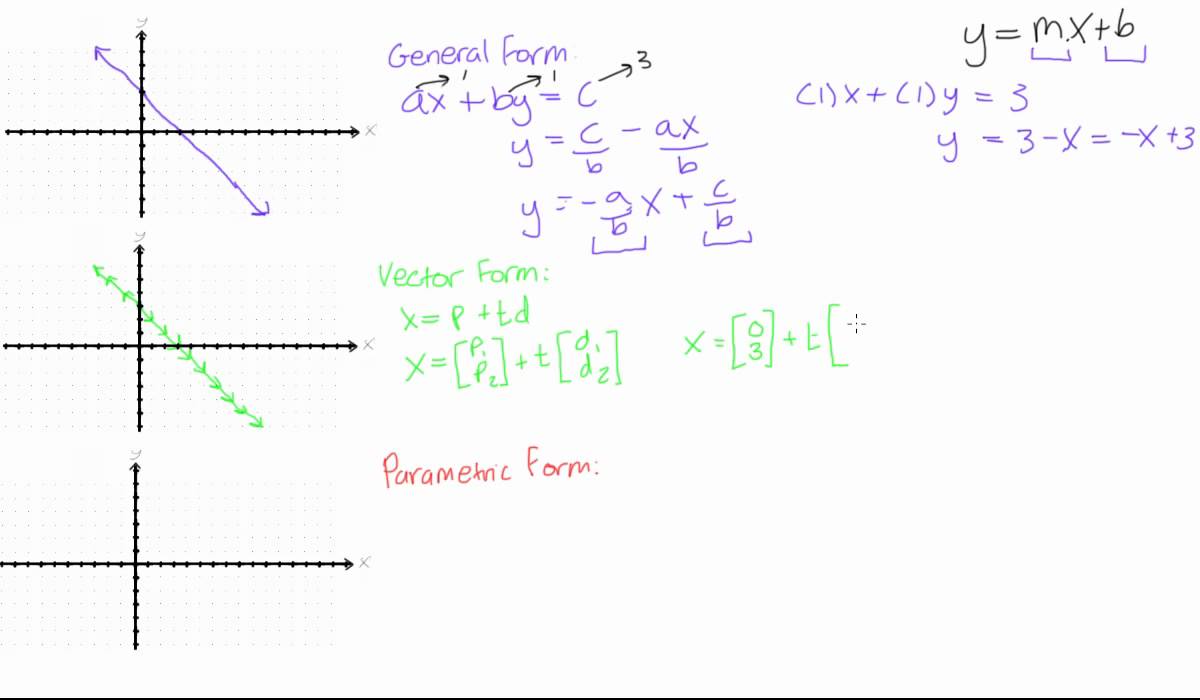 y
x
General Form
ax + by = c
1
1
3
y = c/b - ax/b
y = -a/b x + c/b
y = mx + b
(1)x + (1)y = 3
y = 3 - x = -x + 3
y
x
Vector Form:
x = p + td
x = [p1 p2] + t [d1 d2]
x = [0 3] + t [
y
x
Parametric Form: